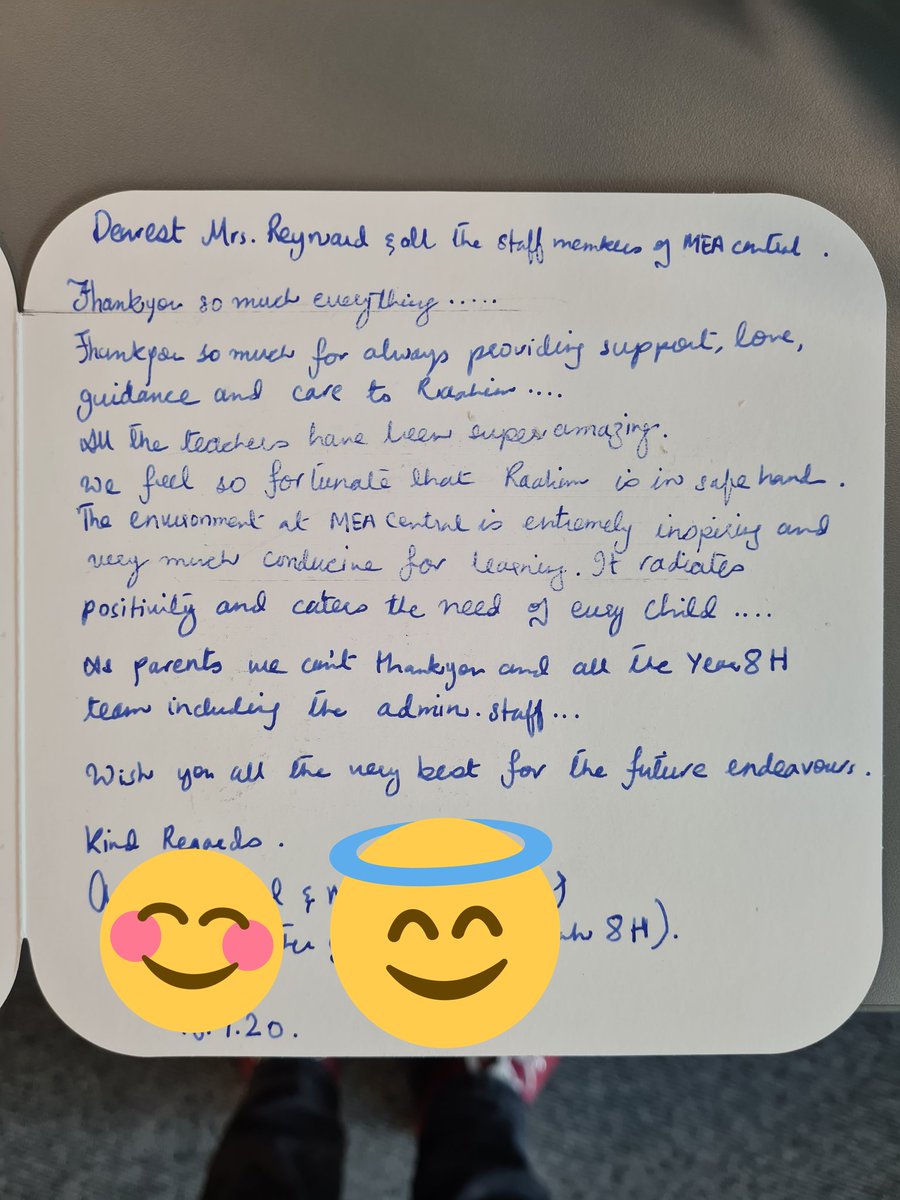 Dearest Mrs. Reynard & all the staff members of MEA central.
Thankyou so much everything.....
Thankyou so much for always providing support, love,
guidance and care to Raahim....
All the teachers have been super amazing.
We feel so fortunate that Raahim is in safe hand.
The environment at MEA Central is extremely inspiring and
very much conducine for learning. It radiates
positivity and caters the need of every child....
As parents we can't thankyou and all the Year 8H
team including the admin. staff...
Wish you all the very best for the future endeavours.
Kind Regards.
&
8H).
.20.